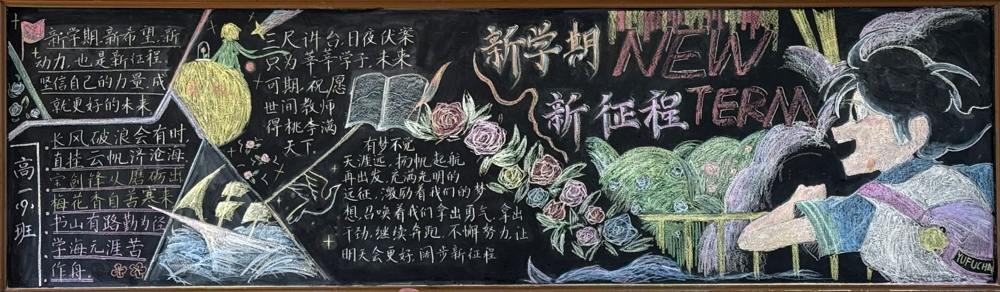 新学期,新希望,新
动力,也是新征程,
坚信自己的力量,成
就更好的未来
高一9班
长风破浪会有时
直挂云帆济沧海
宝剑锋从磨砺出
梅花香自苦寒来
书山有路勤为径
学海无涯苦
作舟。
三尺讲台,日夜伏案
只为莘莘学子,未来
可期,祝愿
世间教师
得桃李满
天下
有梦不觉
天涯远,扬帆起航
再出发,充满光明的
远征,激励着我们的梦
想,召唤着我们拿出勇气,拿出
干劲,继续奔跑,不懈努力,让
明天会更好,阔步新征程
新学期
NEW
新征程
TERM
YUFUCHA